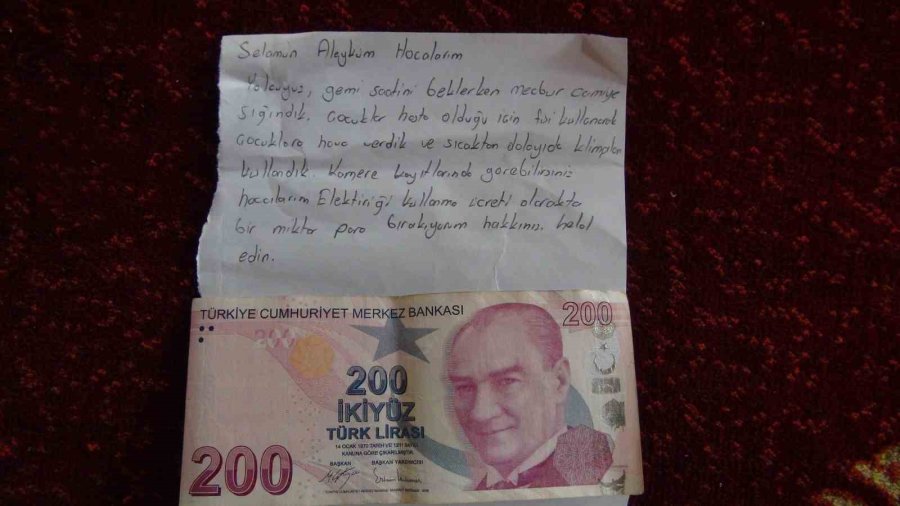 Selamün Aleyküm Hocalarım
Yolcuyuz, gemi saatini beklerken mecbur camiye
sığındık. Çocuklar hasta olduğu için fişi kullanarak
çocuklara hava verdik ve sıcaktan dolayıda klimaları
kullandık. Kamere kayıtlarında görebilirsiniz
hocalarım Elektiriği kullanma ücreti olarakta
bir miktar para bırakıyorum hakkınızı helal
edin.
TÜRKİYE CUMHURİYET MERKEZ BANKASI
200
200
200
İKİYÜZ
TÜRK LİRASI
14 OCAK 1970 TARİH VE 1211 SAYILI
KANUNA GÖRE ÇIKARILMIŞTIR.
BAŞKAN BAŞKAN YARDIMCISI
200